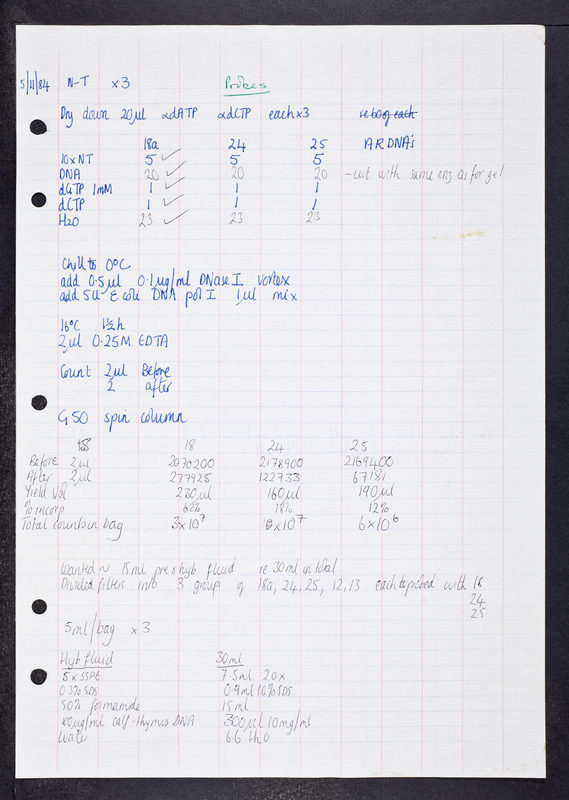 5/11/84 N-T x3 Probes
Dry down 20µl αdATP αdCTP each x3
18a 24 25 ARDNA's
10xNT 5 ✓ 5 5
DNA 20 ✓ 20 20 - cut with same enz as for gel
dGTP 1mM 1 ✓ 1 1
dCTP 1 ✓ 1 1
H2O 23 ✓ 23 23
Chill to 0°C
add 0.5µl 0.1µg/ml DNase I vortex
add 5U E coli DNA pol I 1µl mix
16°C 1½h
2µl 0.25M EDTA
Count 2µl Before
2 after
G50 spin column
18 24 25
Before 2µl 2070200 2178900 2169400
After 2µl 277925 122733 67181
Yield Vol 230µl 160µl 190µl
% incorp 62% 18% 12%
Total counts in bag 3x10⁷ x10⁷ 6x10⁶
Wanted ~ 15ml pre & hyb fluid ie 30ml in total
Divided filters into 3 groups of 18a, 24, 25, 12, 13 each to be probed with 18
24
25
5ml/bag x3
Hyb fluid 30ml
5x SSPE 7.5ml 20x
0.3% SDS 0.9ml 10% SDS
50% formamide 15ml
100µg/ml calf-thymus DNA 300µl 10mg/ml
Water 6.6 H2O